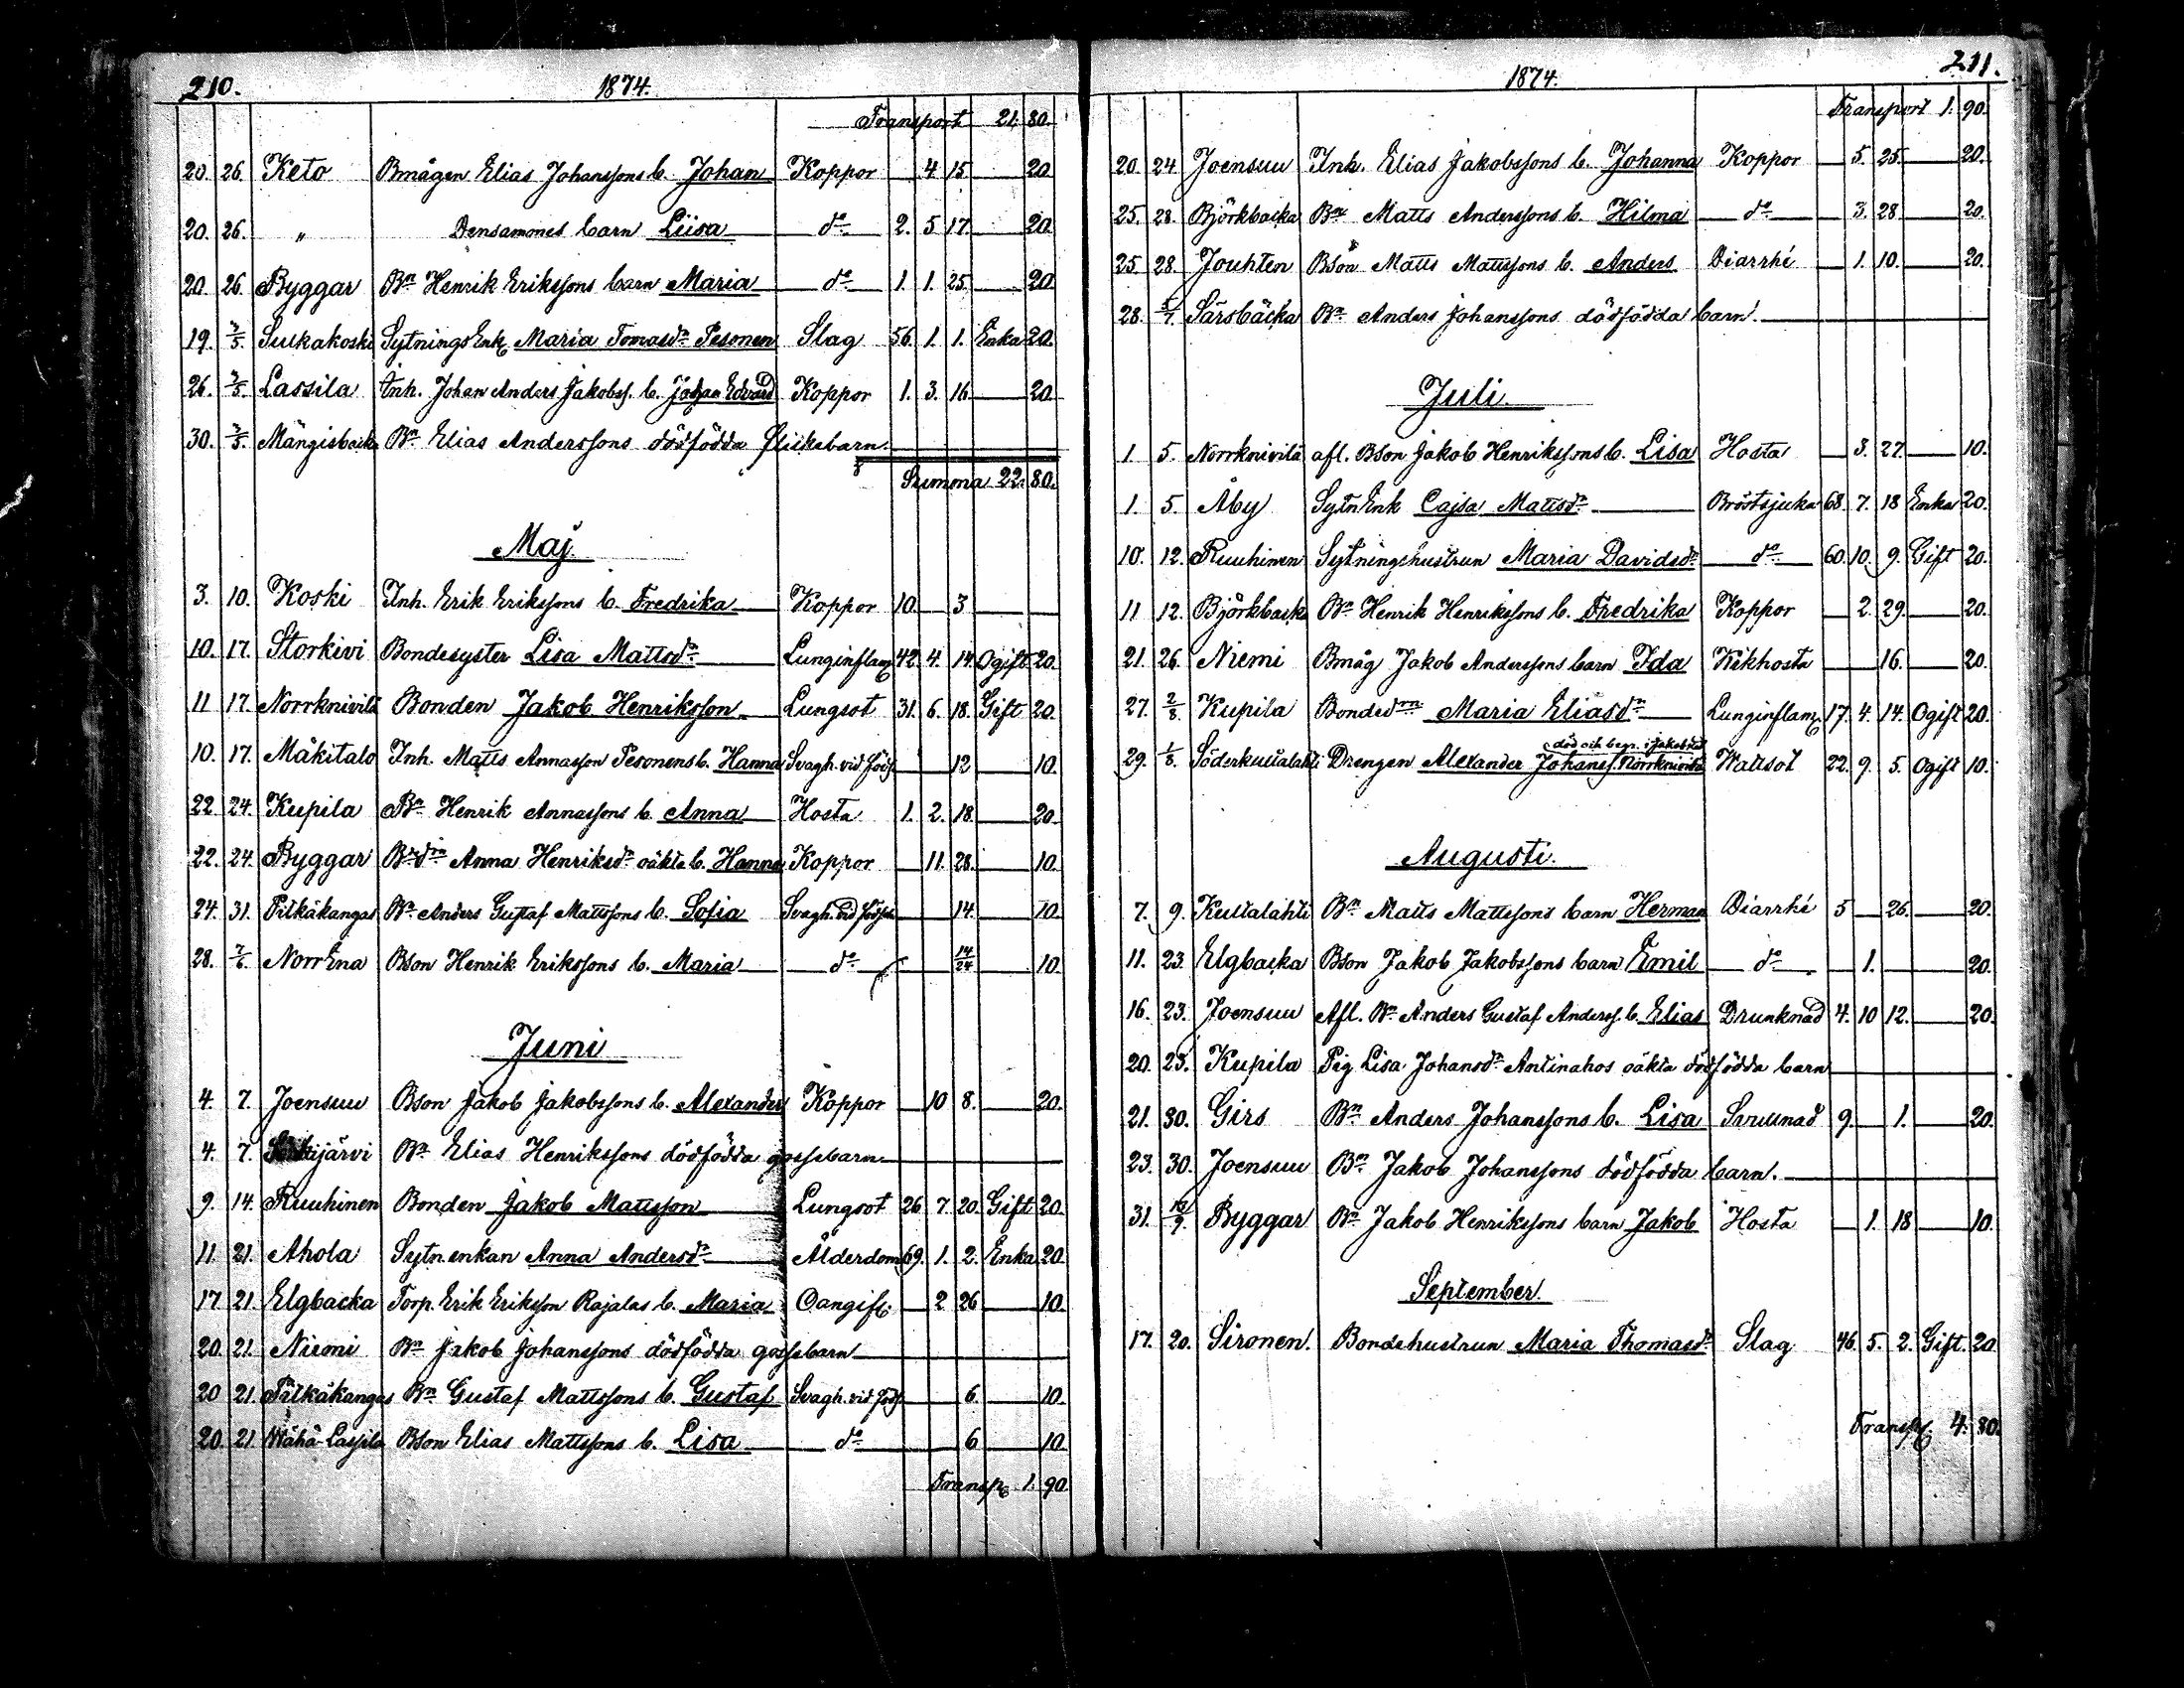 210.
1874.
Transport 21. 80.
20. 26. Keto Bmågen Elias Johanssons b. Johan Koppor 4 15 20
20. 26. " Densammes barn Liisa do 2. 5 17. 20
20. 26. Byggar Bn Henrik Erikssons barn Maria do 1. 1. 25. 20
19. 3/5. Sukakoski SytningsEnk Maria Tomasdr Pesonen Slag 56. 1. 1. Enka 20.
26. 3/5. Lassila Inh. Johan Anders Jakobss. b. Johan Edvard Koppor 1. 3. 16 20.
30. 3/5. Mängisbacka Bn Elias Anderssons dödfödda flickebarn.
Summa 22. 80.
Maj.
3. 10. Koski Inh. Erik Erikssons b. Fredrika Koppor 10. 3
10. 17. Storkivi Bondesyster Lisa Mattsdr Lunginflam 42. 4. 14. Ogift 20.
11 17. Norrknivilä Bonden Jakob Henriksson Lungsot 31. 6. 18. Gift 20.
10. 17. Mäkitalo Inh. Matts Annasson Pesonens b. Hanna Svagh. vid föds. 12 10.
22. 24. Kupila Bn Henrik Annassons b. Anna Hosta 1. 2. 18. 20.
22. 24. Byggar Bndr Anna Henriksdr oäkta b. Hanna Koppor 11. 28. 10.
24. 31. Pitkäkangas Bn Anders Gustaf Mattssons b. Sofia Svagh. vid födsel 14. 10.
28. 7/6. NorrEna Bson Henrik Erikssons b. Maria do 14/24 10.
Juni
4. 7. Joensuu Bson Jakob Jakobssons b. Alexander Koppor 10 8. 20.
4. 7. Bn Elias Henrikssons dödfödda gossebarn
9. 14. Ruuhinen Bonden Jakob Mattsson Lungsot 26. 7. 20. Gift 20.
11. 21. Ahola Sytn.enkan Anna Andersdr Ålderdom 69. 1. 2. Enka 20.
17 21. Elgbacka Torp. Erik Eriksson Rajalas b. Maria Oangif. 2 26 10.
20. 21. Niemi Bn Jakob Johanssons dödfödda gossebarn
20 21. Pitkäkangas Bn Gustaf Mattssons b. Gustaf Svagh. vid föds. 6. 10.
20. 21. Wähä-Lassila Bson Elias Mattssons b. Lisa do 6 10
Transp. 1. 90.
211.
1874.
Transport 1. 90.
20. 24 Joensuu Inh. Elias Jakobssons b. Johanna Koppor 5. 25. 20.
25. 28. Björkbacka Bn Matts Anderssons b. Hilma do 3. 28 20.
25. 28. Jouhten Bson Matts Mattssons b. Anders Diarrhé 1. 10. 20.
28. 5/7. Särsbäcka Bn Anders Johanssons dödfödda barn.
Juli.
1. 5. Norrknivilä afl. Bson Jakob Henrikssons b. Lisa Hosta 3. 27. 10.
1. 5. Åby SytnEnk Cajsa Mattsdr Bröstsjuka 68. 7. 18 Enka 20.
10. 12. Ruuhinen Sytningshustrun Maria Davidsdr do 60. 10. 9. Gift 20.
11 12. Björkbacka Bn Henrik Henrikssons b. Fredrika Koppor 2. 29. 20.
21. 26. Niemi Bmåg Jakob Anderssons barn Ida Kikhosta 16. 20.
27. 2/8. Kupila Bondedrn Maria Eliasdr Lunginflam. 17. 4. 14. Ogift 20.
död och begr. i Jakobstad
29. 1/8. Söderkultalahti Drengen Alexander Johanss. Norrknivilä Wattsot 22. 9. 5. Ogift 10.
Augusti.
7. 9. Kultalahti Bn Matts Mattssons barn Herman Diarrhé 5 26. 20.
11. 23. Elgbacka Bson Jakob Jakobssons barn Emil do 1. 20.
16. 23. Joensuu Afl. Bn Anders Gustaf Anderss. b. Elias Drunknad 4. 10 12. 20.
20. 23. Kupila Pig. Lisa Johansdr Antinahos oäkta dödfödda barn
21. 30. Girs Bn Anders Johanssons b. Lisa 9. 1. 20.
23. 30. Joensuu Bn Jakob Johanssons dödfödda barn.
31. /9. Byggar Bn Jakob Henrikssons barn Jakob Hosta 1. 18 10.
September.
17. 20. Sironen. Bondehustrun Maria Thomasdr Slag 46. 5. 2. Gift. 20.
Transp. 4. 30.